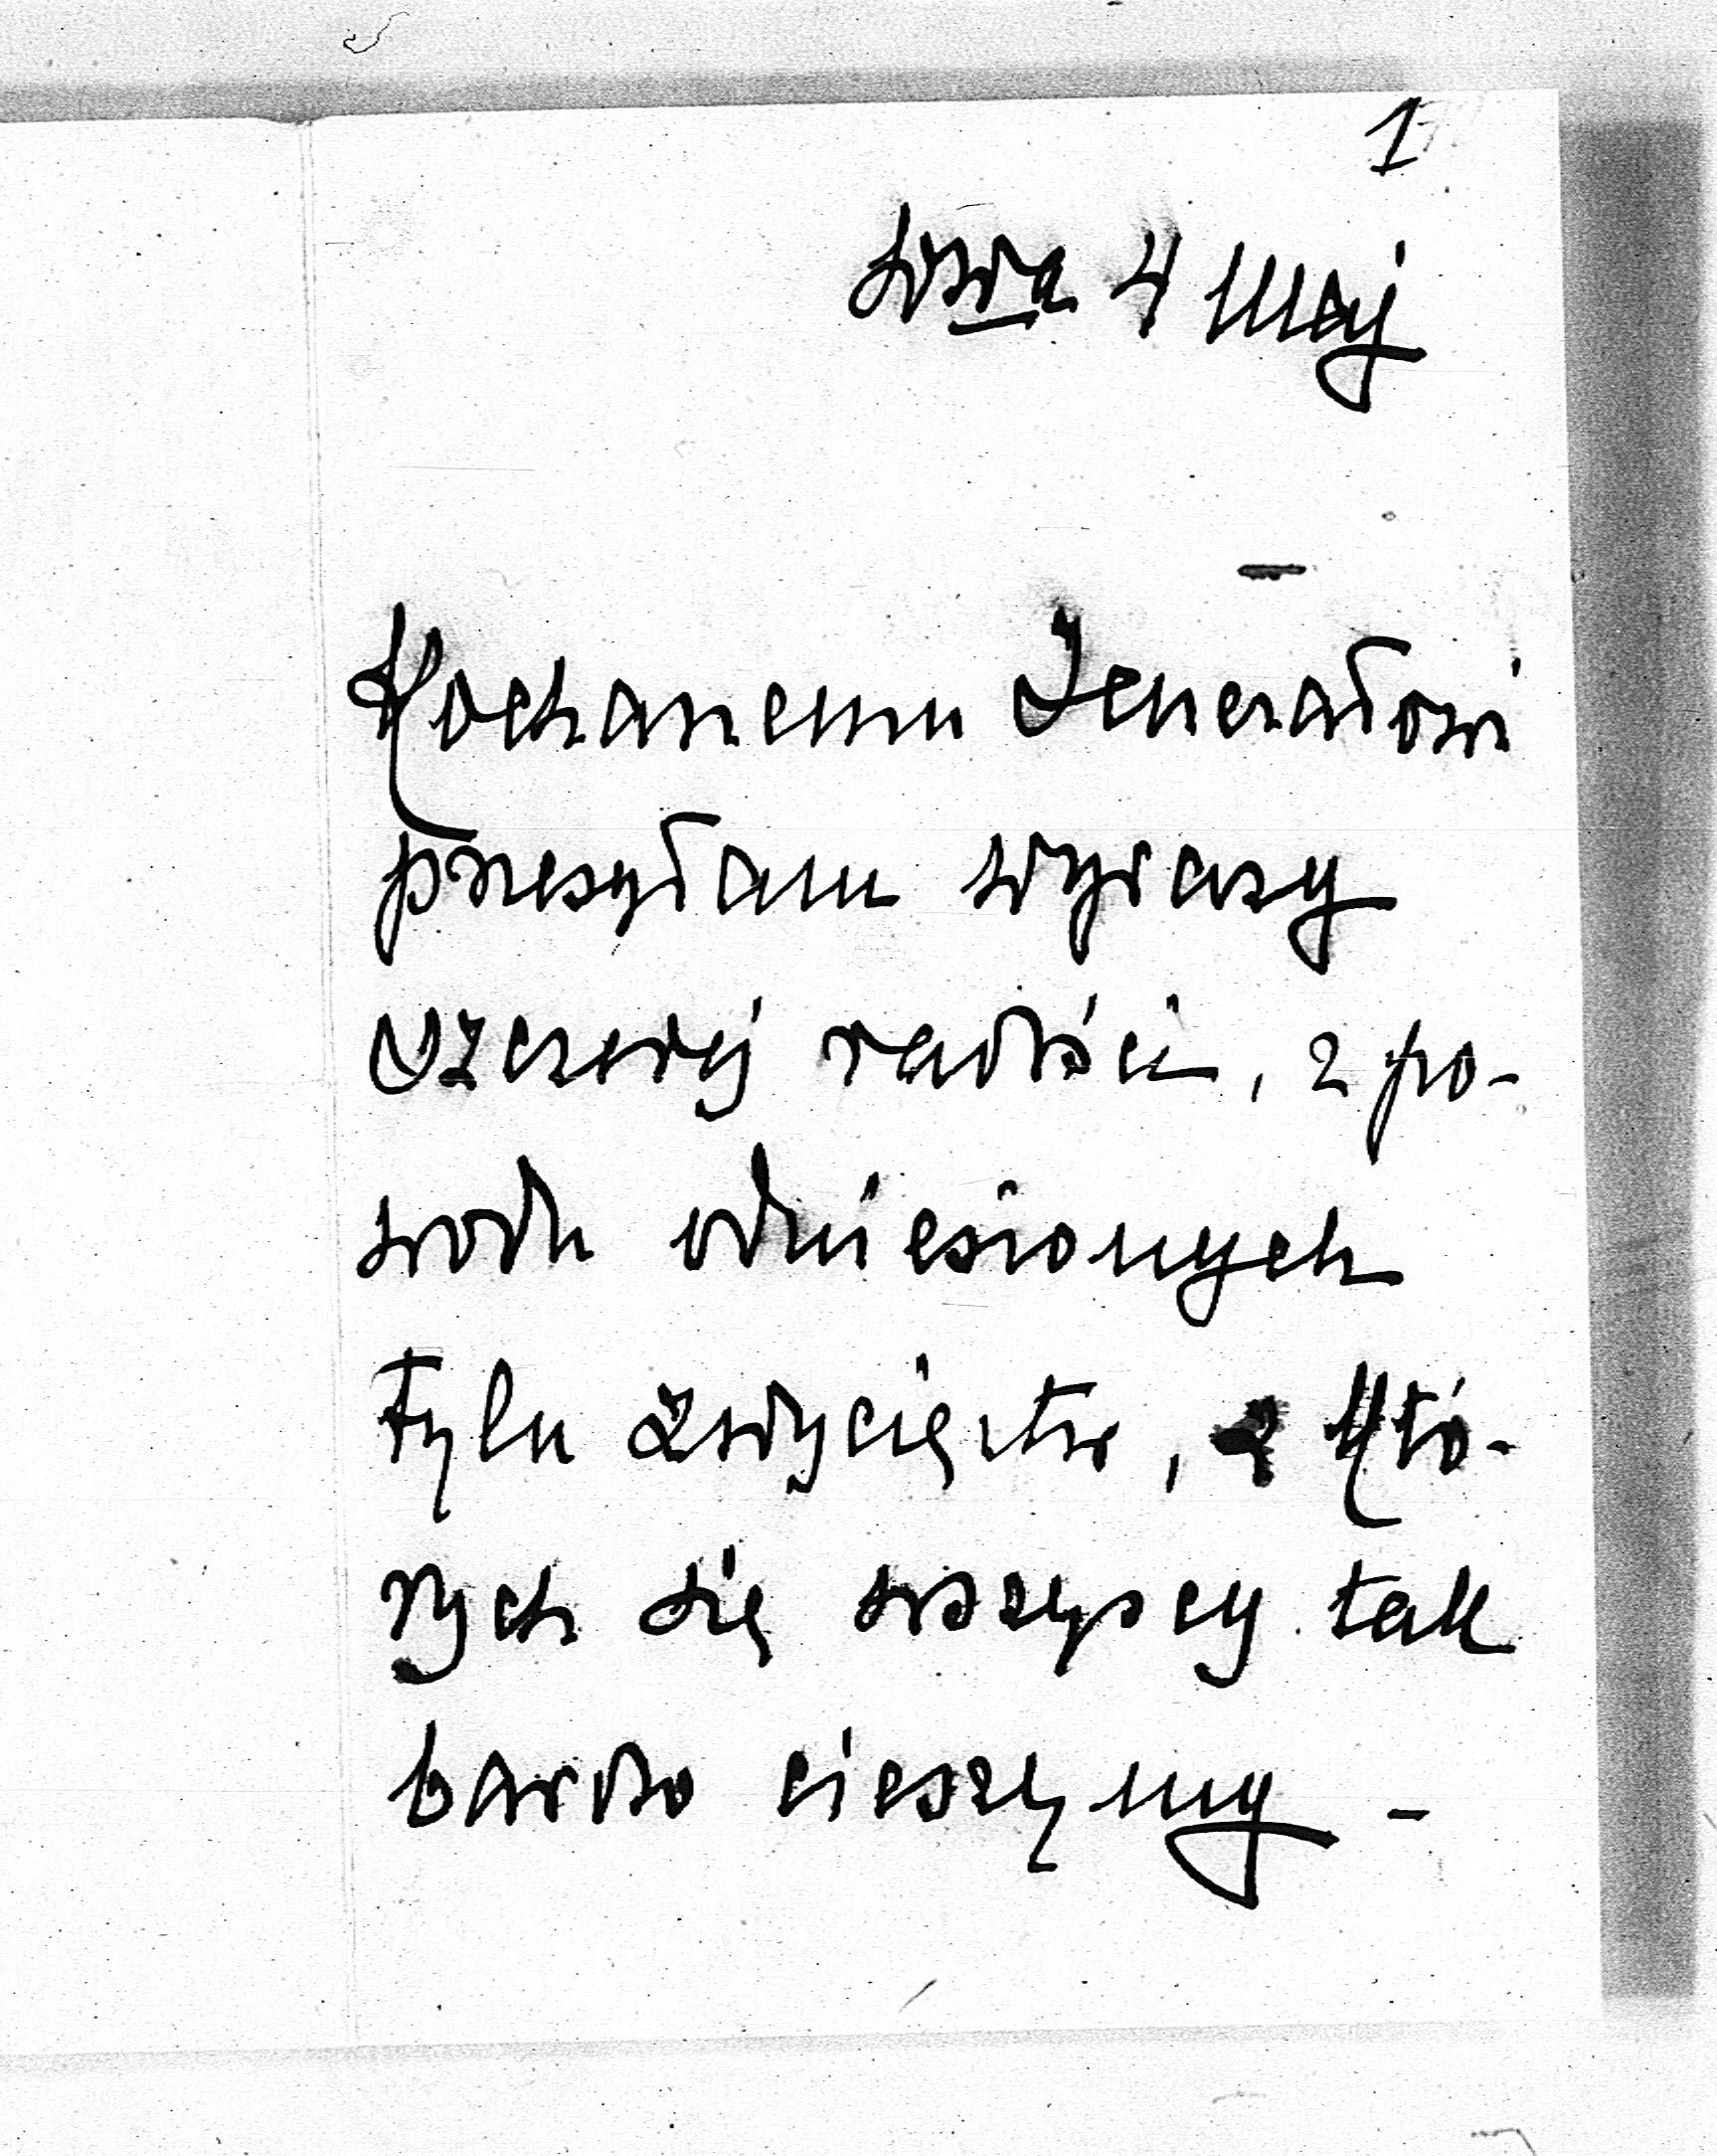 1
wwa 4 Maj
Kochanemu Jenerałowi
przesyłam wyrazy
szczerej radości, z po-
wodu odniesionych
tylu zwycięstw, z któ-
rych się wszyscy tak
bardzo cieszymy -